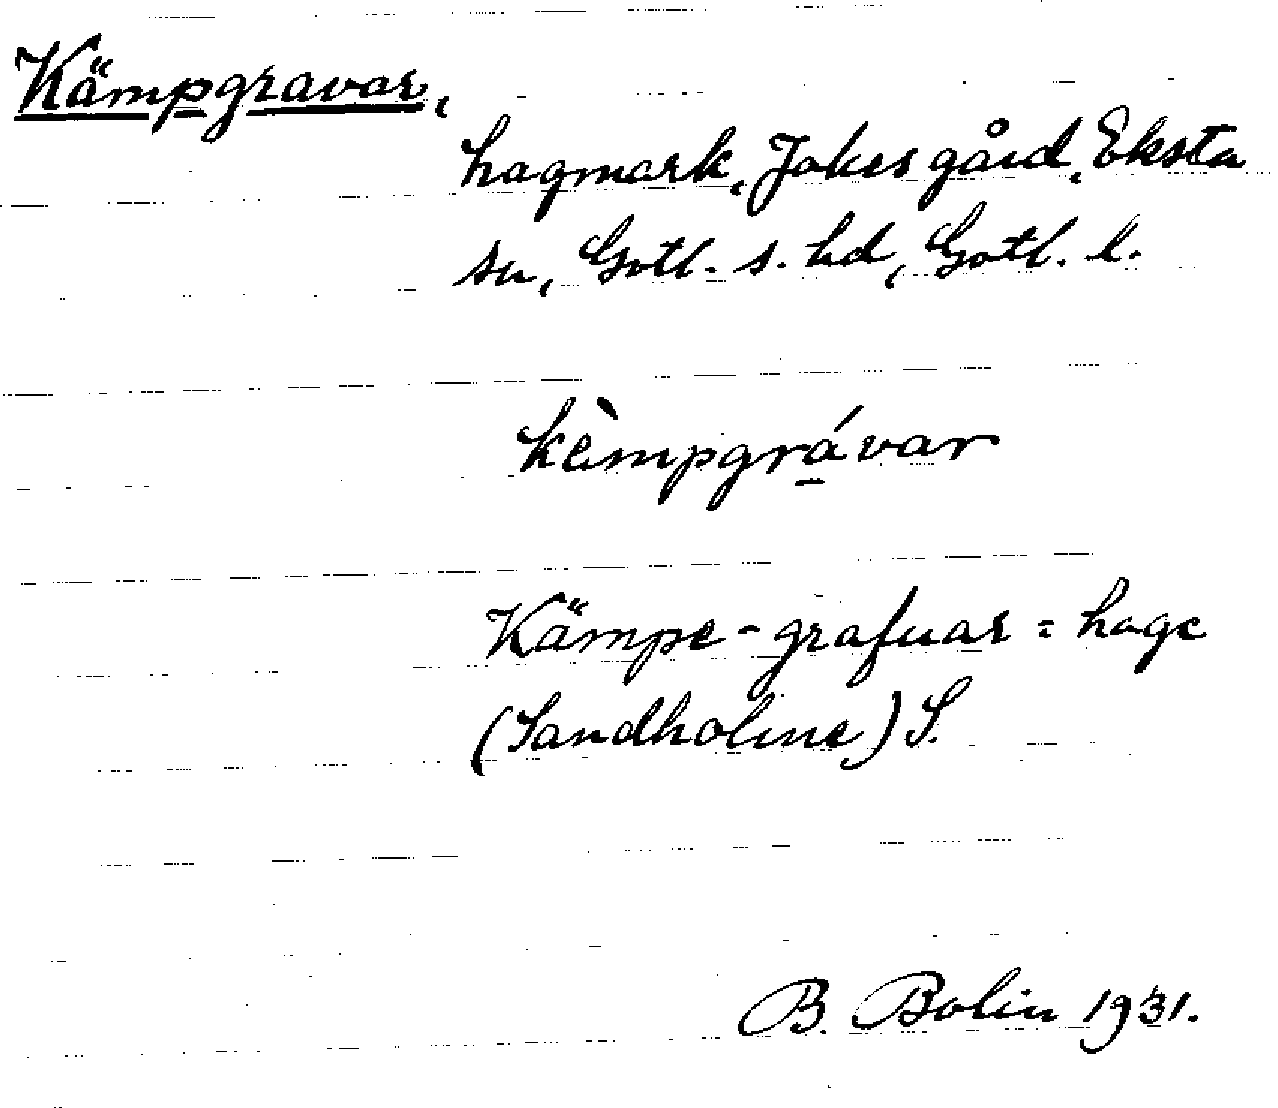 Kämpgravar,
hagmark, Jakes gård, Eksta
sn, Gotl. s. hd, Gotl. l.
kèmpgrávar
Kämpe-grafuar = hage
(Sandholme) S.
B. Bolin 1931.